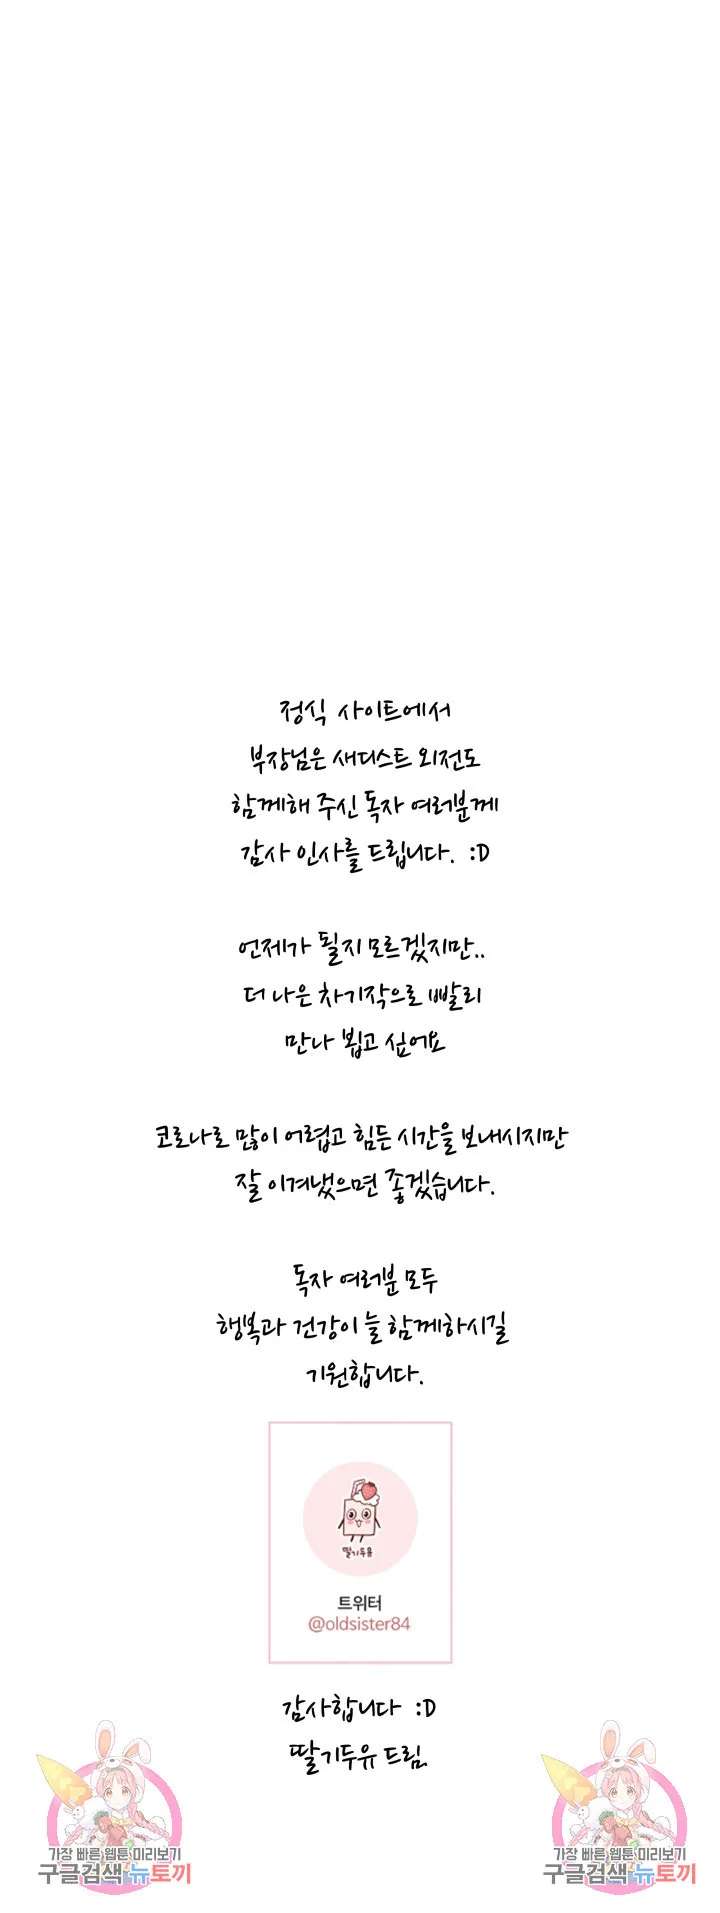 정식 사이트에서
부장님은 새디스트 외전도
함께해 주신 독자 여러분께
감사 인사를 드립니다. :D
언제가 될지 모르겠지만..
더 나은 차기작으로 빨리
만나 뵙고 싶어요
코로나로 많이 어렵고 힘든 시간을 보내시지만
잘 이겨냈으면 좋겠습니다.
독자 여러분 모두
행복과 건강이 늘 함께하시길
기원합니다.
딸기두유
트위터
@oldsister84
감사합니다 :D
딸기두유 드림.
가장 빠른 웹툰 미리보기
구글검색 뉴토끼
가장 빠른 웹툰 미리보기
구글검색 뉴토끼